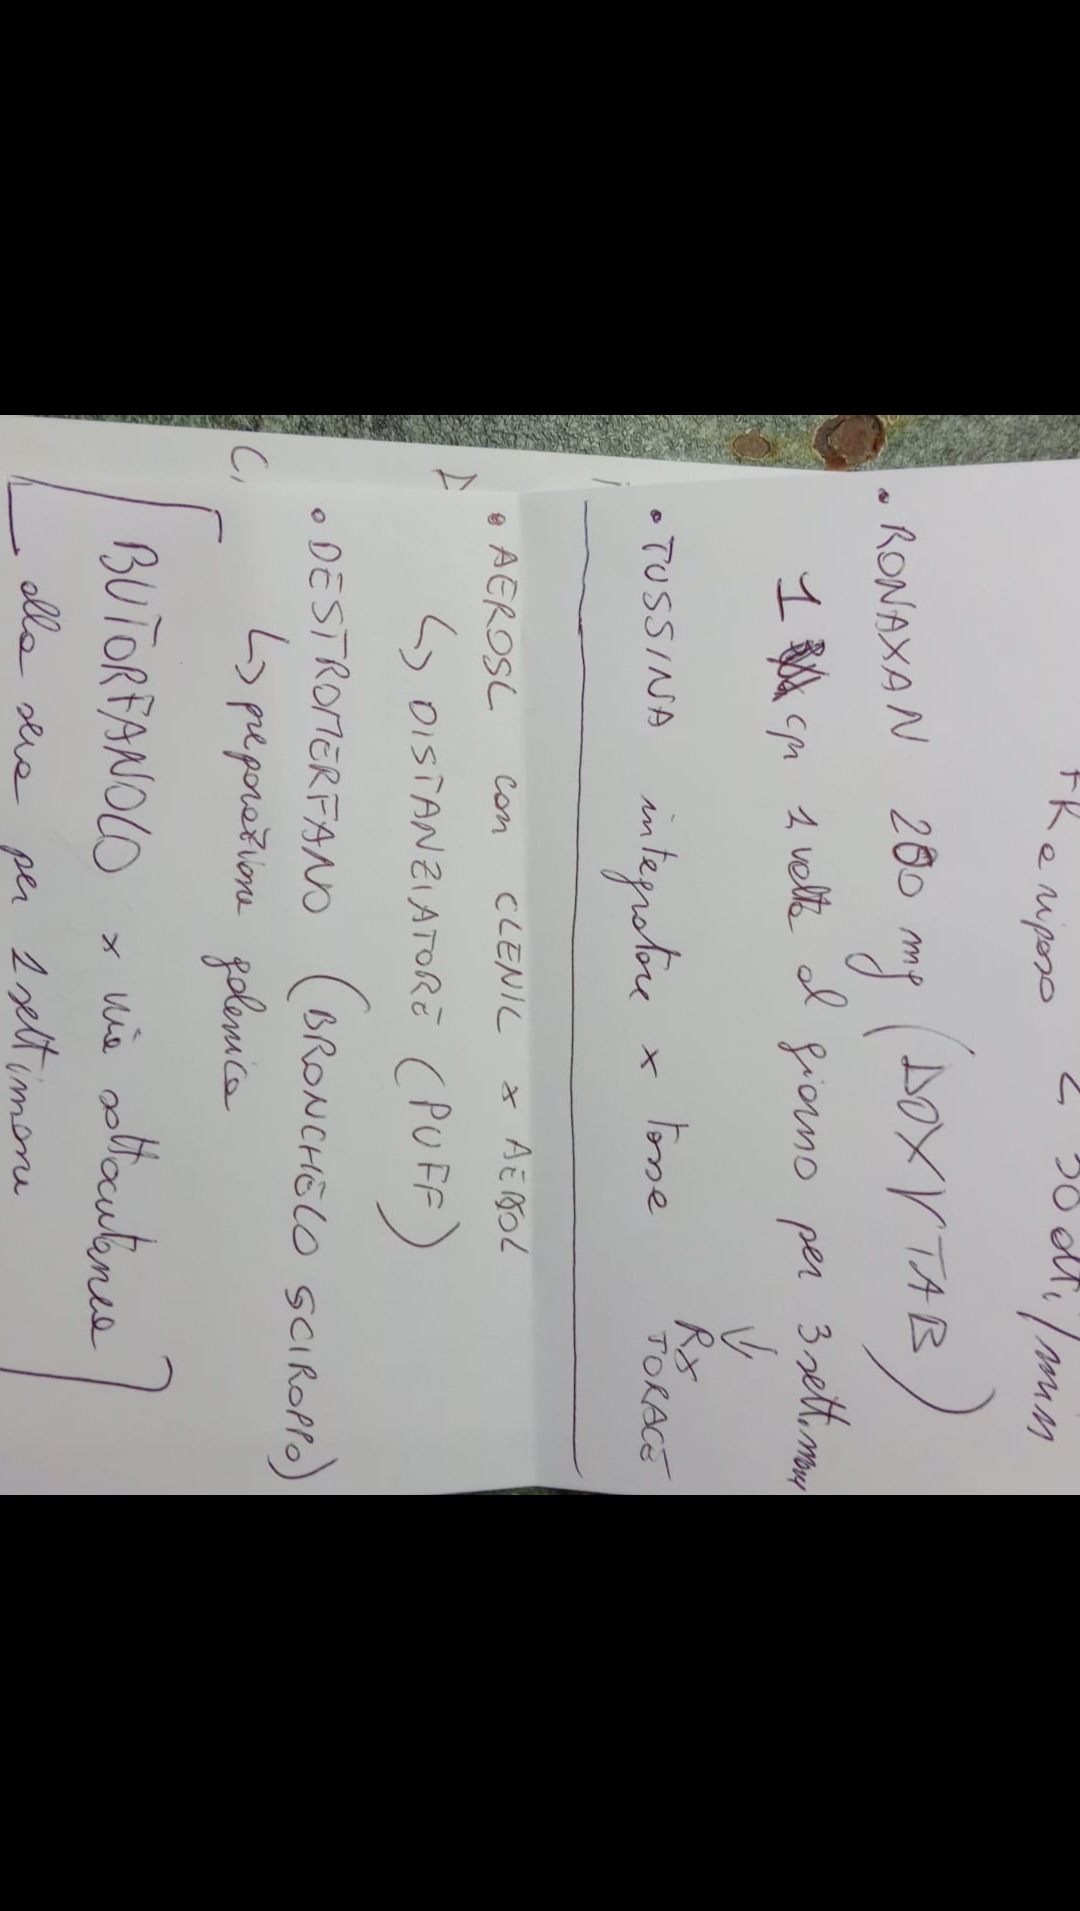 FR a riposo < 30 atti/min
• RONAXAN 200 mg (DOXYTAB)
1 cp 1 volta al giorno per 3 settimane
↓
RX TORACE
• TUSSINA integratore x tosse
• AEROSL con CLENIL x AEROSOL
↳ DISTANZIATORE (PUFF)
• DESTROMERFANO (BRONCHELO SCIROPPO)
↳ preparazione galenica
[BUTORFANOLO x via sottocutanea]
alla sera per 1 settimana